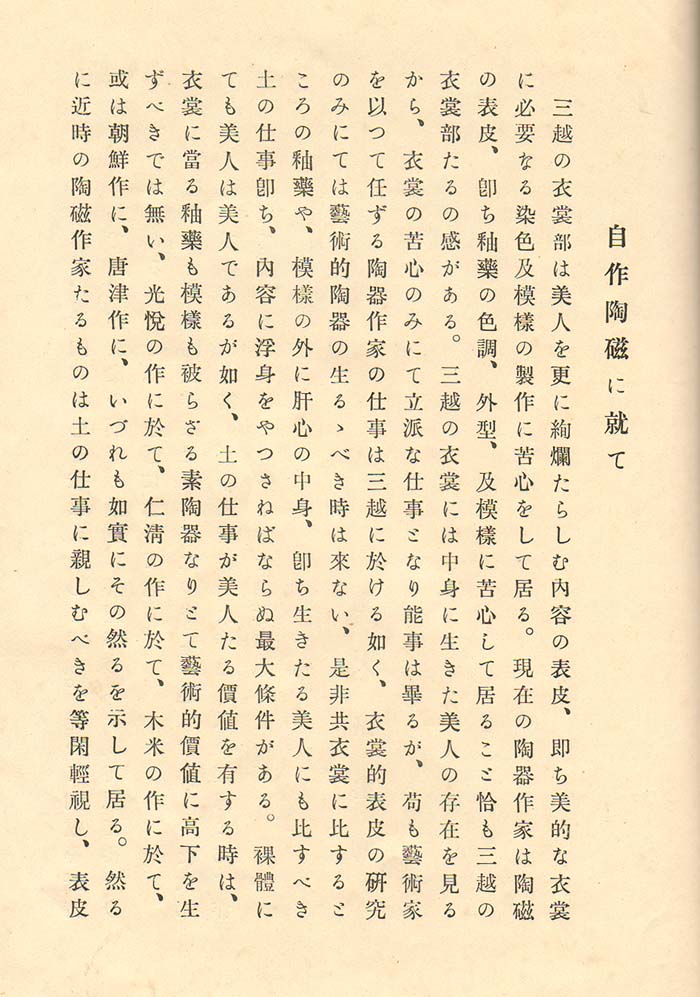 自作陶磁に就て
三越の衣裳部は美人を更に絢爛たらしむ內容の表皮、卽ち美的な衣裳
に必要なる染色及模樣の製作に苦心をして居る。現在の陶器作家は陶磁
の表皮、卽ち釉藥の色調、外型、及模樣に苦心して居ること恰も三越の
衣裳部たるの感がある。三越の衣裳には中身に生きた美人の存在を見る
から、衣裳の苦心のみにて立派な仕事となり能事は畢るが、苟も藝術家
を以つて任ずる陶器作家の仕事は三越に於ける如く、衣裳的表皮の硏究
のみにては藝術的陶器の生るゝべき時は來ない、是非共衣裳に比すると
ころの釉藥や、模樣の外に肝心の中身、卽ち生きたる美人にも比すべき
土の仕事卽ち、內容に浮身をやつさねばならぬ最大條件がある。裸體に
ても美人は美人であるが如く、土の仕事が美人たる價値を有する時は、
衣裳に當る釉藥も模樣も被らざる素陶器なりとて藝術的價値に高下を生
ずべきでは無い、光悅の作に於て、仁淸の作に於て、木米の作に於て、
或は朝鮮作に、唐津作に、いづれも如實にその然るを示して居る。然る
に近時の陶磁作家たるものは土の仕事に親しむべきを等閑輕視し、表皮